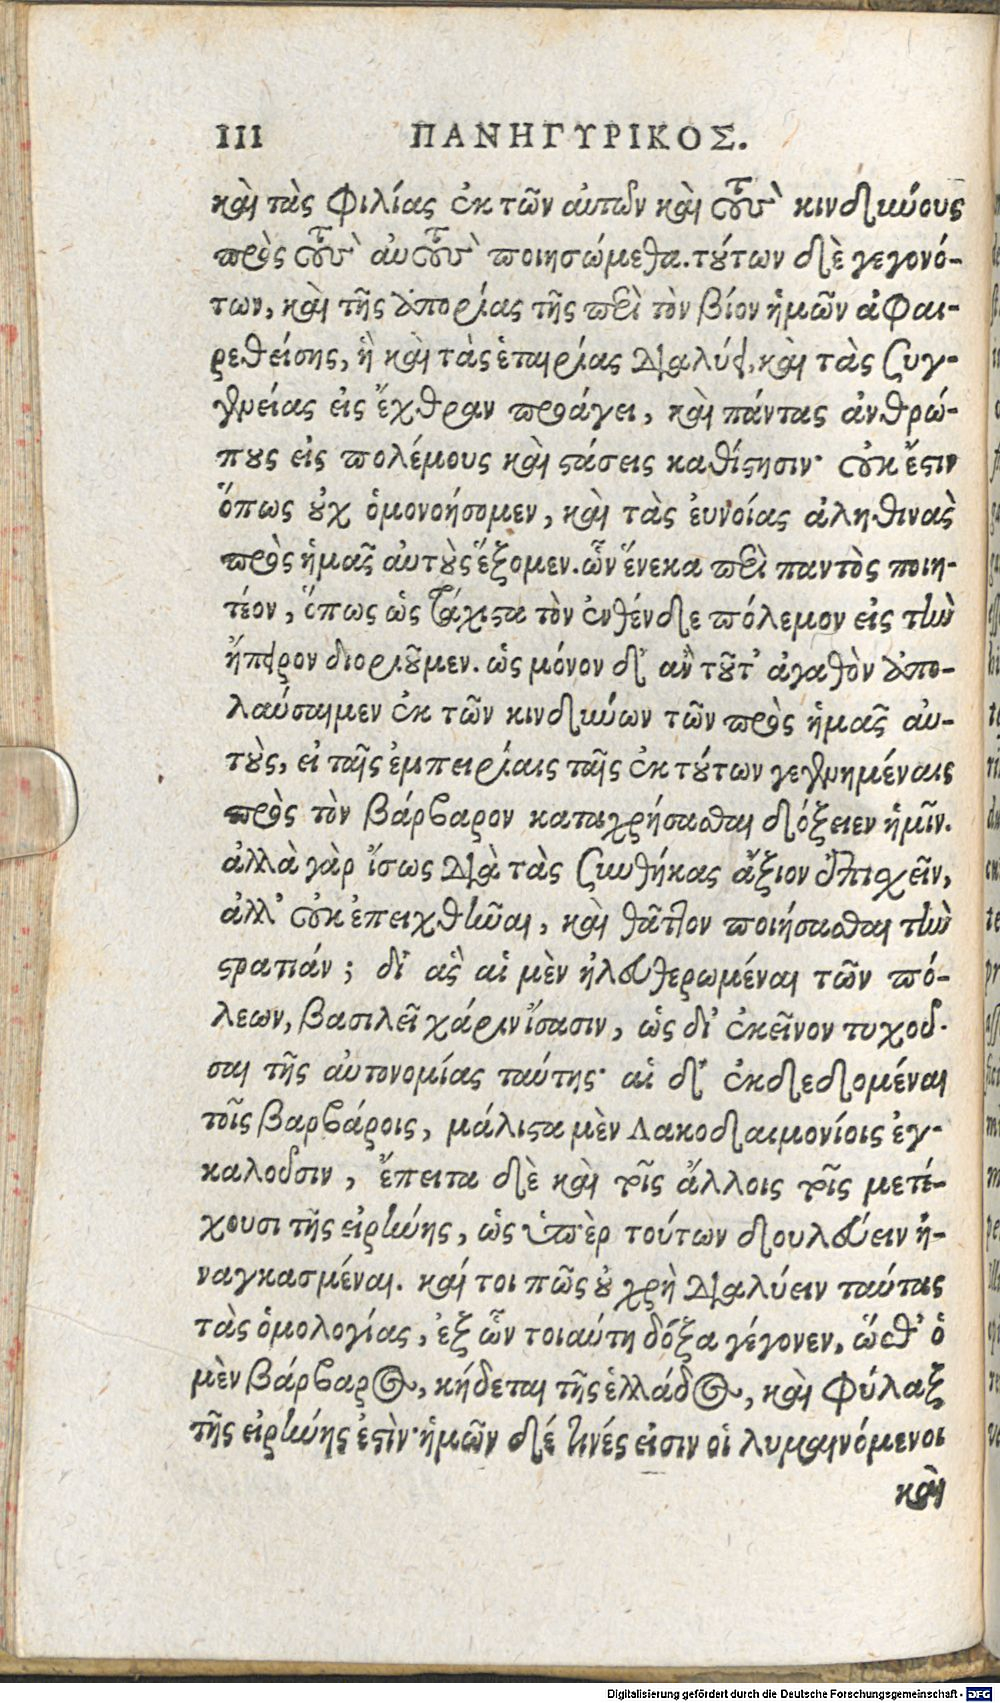 III ΠΑΝΗΓΥΡΙΚΟΣ.
καὶ τὰς φιλίας ἐκ τῶν αὐτῶν καὶ τοὺς κινδιωύους
πρὸς τοὺς αὐτοὺς ποιησώμεθα. τούτων δὲ γεγονό-
των, καὶ τῆς ἀπορίας τῆς περὶ τὸν βίον ἡμῶν ἀφαι-
ρεθείσης, ἣ καὶ τὰς ἑταιρίας διαλύει, καὶ τὰς συγ-
γενείας εἰς ἔχθραν προάγει, καὶ πάντας ἀνθρώ-
πους εἰς πολέμους καὶ στάσεις καθίστησιν· οὐκ ἔστιν
ὅπως οὐχ ὁμονοήσομεν, καὶ τὰς εὐνοίας ἀληθινὰς
πρὸς ἡμᾶς αὐτοὺς ἕξομεν. ὧν ἕνεκα περὶ παντὸς ποιη-
τέον, ὅπως ὡς τάχιστα τὸν ἐνθένδε πόλεμον εἰς τὴν
ἤπειρον διοριοῦμεν. ὡς μόνον δ' ἂν τοῦτ' ἀγαθὸν ἀπο-
λαύσαιμεν ἐκ τῶν κινδύνων τῶν πρὸς ἡμᾶς αὐ-
τοὺς, εἰ ταῖς ἐμπειρίαις ταῖς ἐκ τούτων γεγενημέναις
πρὸς τὸν βάρβαρον καταχρήσασθαι δόξειεν ἡμῖν.
ἀλλὰ γὰρ ἴσως διὰ τὰς συνθήκας ἄξιον ἐπισχεῖν,
ἀλλ' οὐκ ἐπειχθῆναι, καὶ θᾶττον ποιήσασθαι τὴν
στρατιάν; δι' ἃς αἱ μὲν ἠλευθερωμέναι τῶν πό-
λεων, βασιλεῖ χάριν ἴσασιν, ὡς δι' ἐκεῖνον τυχοῦ-
σαι τῆς αὐτονομίας ταύτης· αἱ δ' ἐκδεδομέναι
τοῖς βαρβάροις, μάλιστα μὲν Λακεδαιμονίοις ἐγ-
καλοῦσιν, ἔπειτα δὲ καὶ τοῖς ἄλλοις τοῖς μετέ-
χουσι τῆς εἰρήνης, ὡς ὑπὲρ τούτων δουλεύειν ἠ-
ναγκασμέναι. καί τοι πῶς οὐ χρὴ διαλύειν ταύτας
τὰς ὁμολογίας, ἐξ ὧν τοιαύτη δόξα γέγονεν, ὥσθ' ὁ
μὲν βάρβαρος, κήδεται τῆς ἑλλάδος, καὶ φύλαξ
τῆς εἰρήνης ἐστὶν· ἡμῶν δέ τινές εἰσιν οἱ λυμαινόμενοι
καὶ
Digitalisierung gefördert durch die Deutsche Forschungsgemeinschaft - DFG